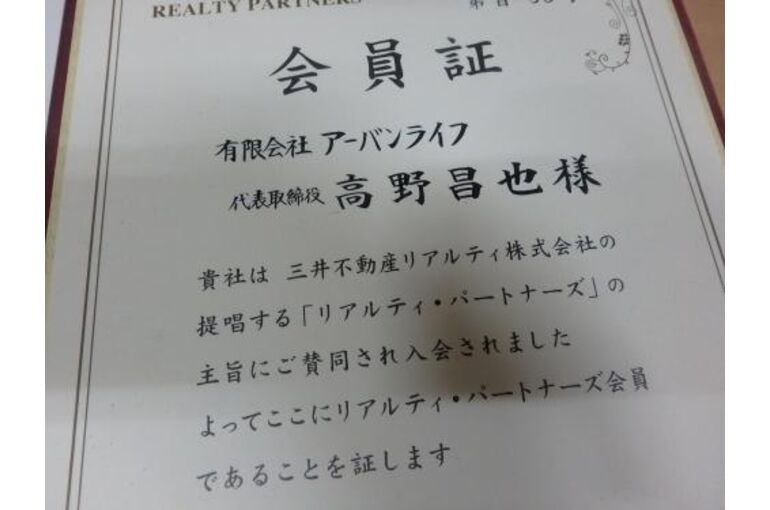 REALTY PARTNERS
会員証
有限会社 アーバンライフ
代表取締役 高野昌也様
貴社は 三井不動産リアルティ株式会社の
提唱する「リアルティ・パートナーズ」の
主旨にご賛同され入会されました
よってここにリアルティ・パートナーズ会員
であることを証します